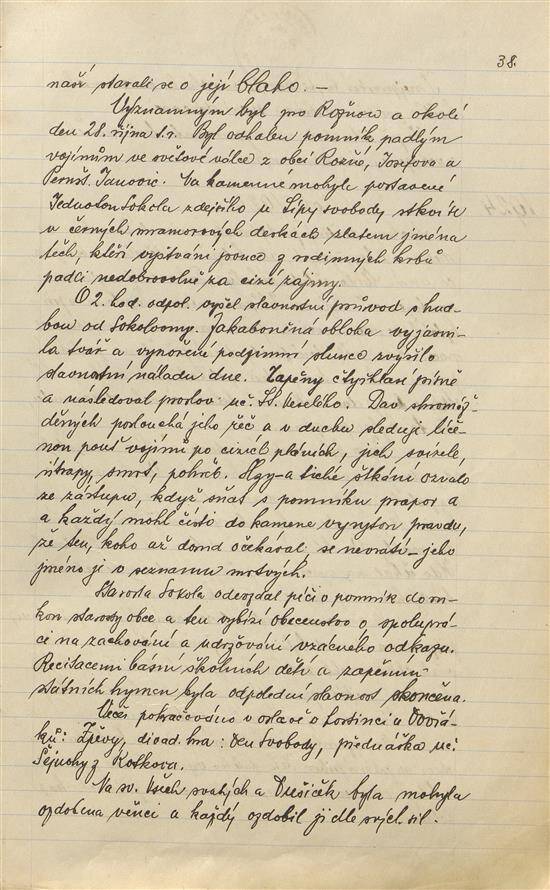 38.
naší starali se o její blaho. —
Významným byl pro Rožnou a okolí
den 28. října t.r. Byl odhalen pomník padlým
vojínům ve světové válce z obcí Rožné, Josefova a
Pernšt. Janovic. Na kamenné mohyle postavené
Jednotou Sokola zdejšího u Lípy svobody stkví se
v černých mramorových deskách zlatem jména
těch, kteří vyštváni jsouce z rodinných krbů
padli nedobrovolně za cizí zájmy.
O 2. hod. odpol. vyšel slavnostní průvod s hud-
bou od Sokolovny. Zakaboněná obloha vyjasni-
la tvář a vynoření podzimní slunce zvýšilo
slavnostní náladu dne. Zapěny čtyřhlasí písně
a následoval proslov uč. Veselého. Dav shromáž-
děných poslouchá jeho řeč a v duchu sleduje líče-
nou pouť vojínů po cizích pláních, jich svízele,
útrapy, smrt, pohřeb. Hgy-a tiché štkání ozvalo
ze zástupu, když sňat s pomníku prapor a
a každý mohl čísti do kamene vyrytou pravdu,
že ten, koho až dosud očekával, se nevrátí - jeho
jméno je v seznamu mrtvých.
Starosta Sokola odevzdal péči o pomník do ru-
kou starosty obce a ten vybízí obecenstvo o spoluprá-
ci na zachování a udržování vzácného odkazu.
Recitacemi básní školních dětí a zapěním
státních hymen byla odpolední slavnost skončena.
Večer pokračováno v oslavě v hostinci u Dvořá-
ků: Zpěvy, divad. hra: Den Svobody, přednáška uč.
z Rozkova.
Na sv. Všech svatých a Dušiček byla mohyla
ozdobena věnci a každý ozdobil ji dle svých sil.